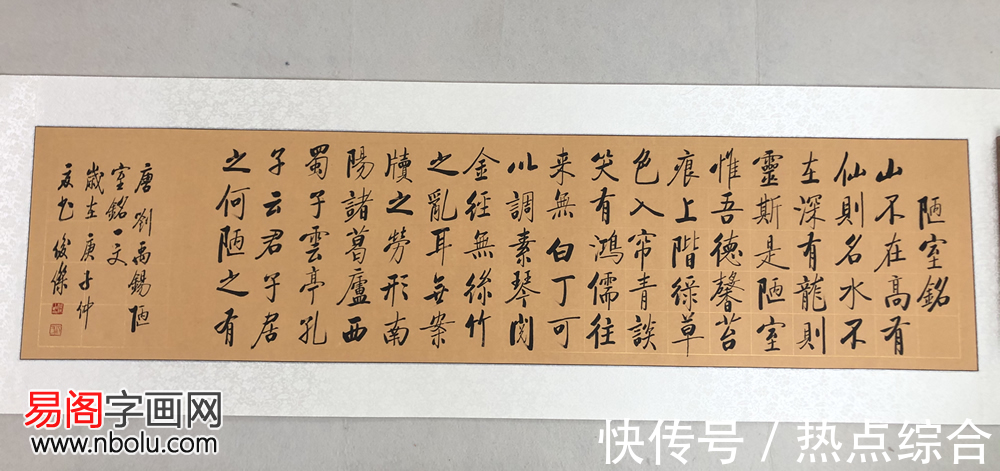 陋室銘
山不在高有
仙則名水不
在深有龍則
靈斯是陋室
惟吾德馨苔
痕上階綠草
色入帘青談
笑有鴻儒往
来無白丁可
以調素琴閱
金經無絲竹
之亂耳無案
牘之勞形南
陽諸葛廬西
蜀子雲亭孔
子云君子居
之何陋之有
唐 劉禹錫陋
室銘一文
歲在庚子仲
夏书 俊傑
易阁字画网
www.nbolu.com
快传号 / 热点综合